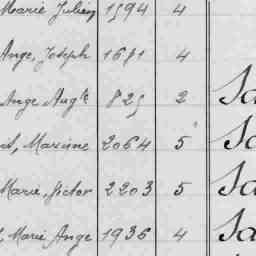 Marie Julien 1594 4
Ange, Joseph 1681 4
Ange Aug.te 825 2 Sa
Maxime 2064 5 Sa
Marie, Victor 2203 5 Sa
Marie Ange 1936 4 Sa